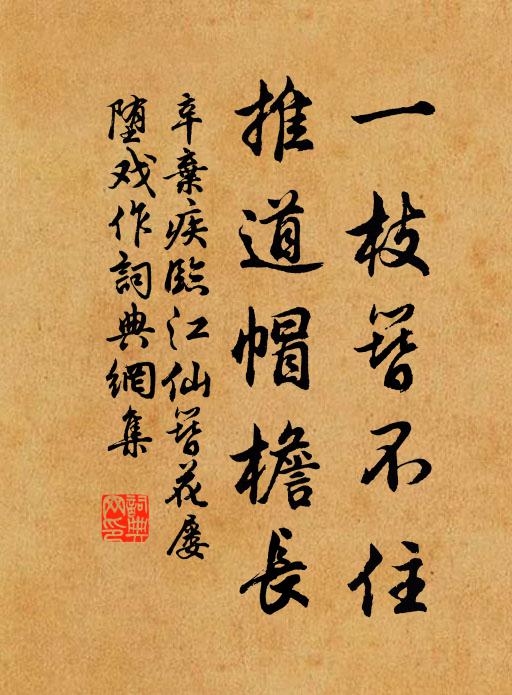 一枝簪不住
推道帽檐長
辛棄疾臨江仙簪花屡
堕戏作詞典網集
詞典網印